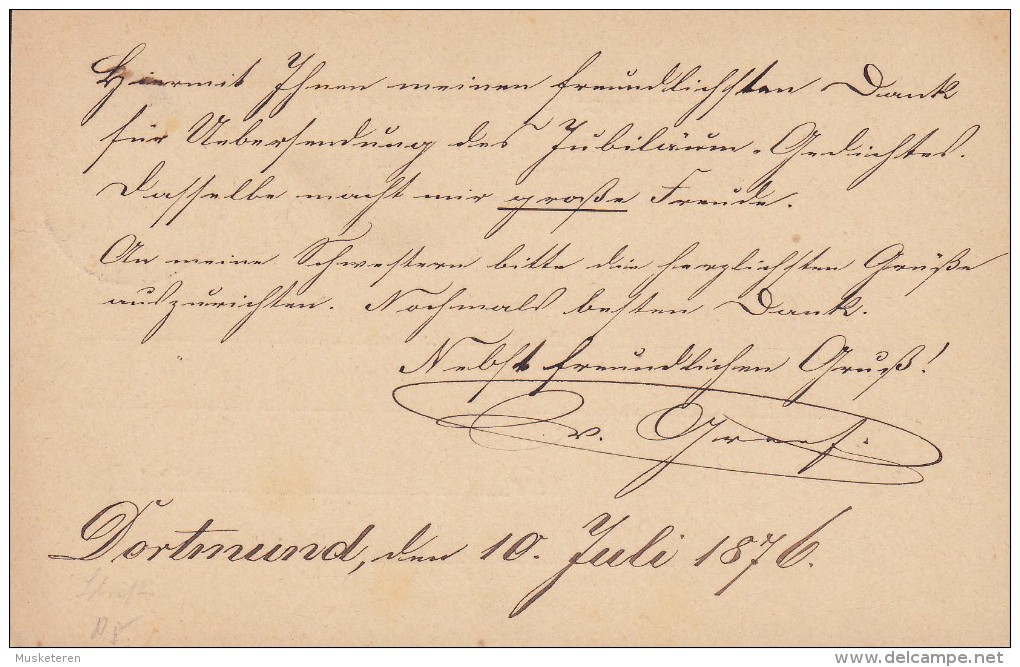 Hiermit Ihnen meinen freundlichsten Dank
für Uebersendung des Jubiläum-Gedichtes.
Dasselbe macht mir große Freude.
An meine Schwestern bitte die herzlichsten Grüße
auszurichten. Nochmals besten Dank.
Nebst freundlichen Gruß!
v. Greef.
Dortmund, den 10. Juli 1876.
Musketeren
delcampe.net